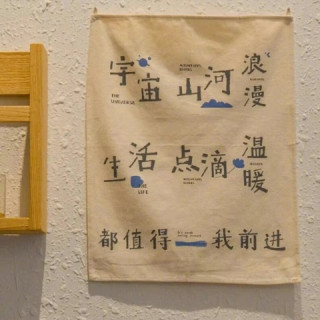 宇宙 山河 浪漫
THE UNIVERSE
生活 点滴 温暖
THE LIFE
都值得 我前进